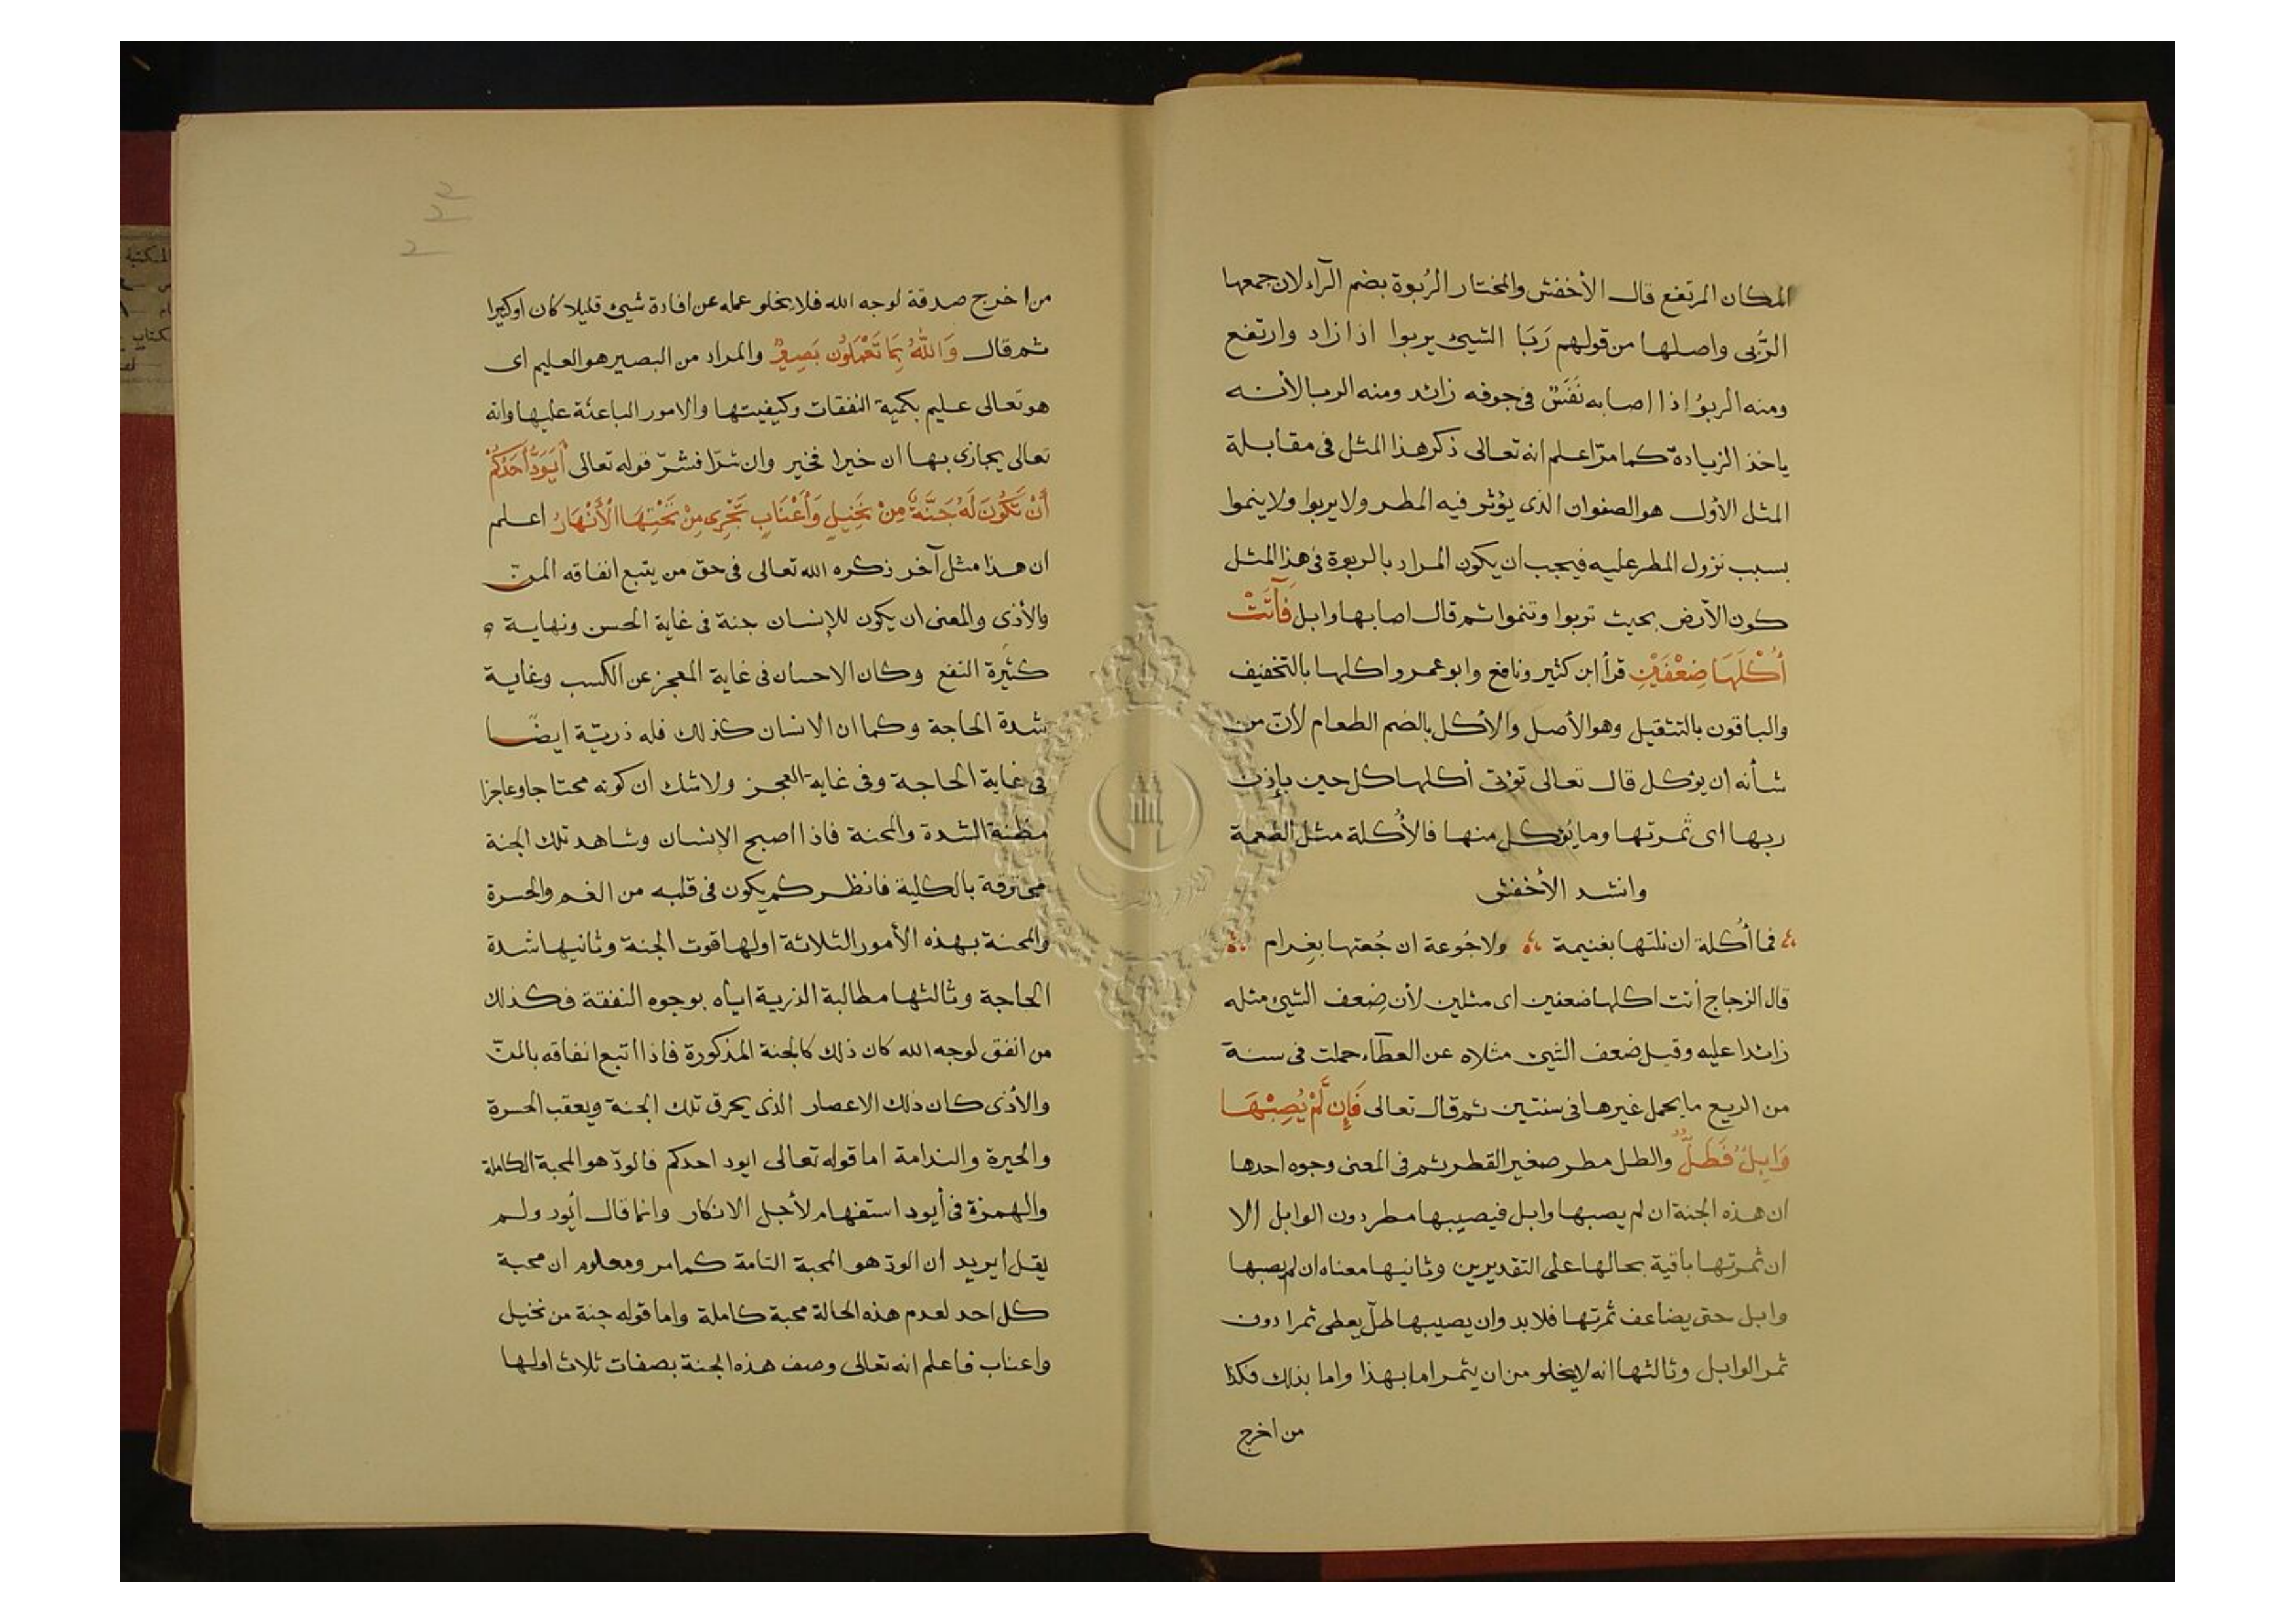 المكان المرتفع قال الأخفش والمختار الرُبوة بضم الرآء لان جمعها
الرُّبى واصلها من قولهم رَبَا الشيئ يربوا اذا زاد وارتفع
ومنه الربوُ اذا اصابه نَفَسٌ فى جوفه زائد ومنه الربا لأنـه
ياخذ الزيادة كما مرّ اعلم انه تعالى ذكر هذا المثل فى مقابلة
المثل الأول هو الصفوان الذى يؤثر فيه المطر ولا يربوا ولا ينموا
بسبب نزول المطر عليه فيجب ان يكون المراد بالربوة فى هذا المثل
كون الأرض بحيث تربوا وتنموا ثم قال اصابها وابل فَآتَتْ
أُكْلَهَا ضِعْفَيْنِ قرأ ابن كثير ونافع وابو عمرو اكلها بالتخفيف
والباقون بالتثقيل وهو الأصل والأكل بالضم الطعام لأنّ من
شأنه ان يؤكل قال تعالى تؤتى أكلها كل حين بإذن
ربها اى ثمرتها وما يؤكل منها فالأُكلة مثل الطعمة
وانشد الأخفش
فما أُكلة ان نلتها بغنيمة ولا جُوعة ان جُعتها بغِرام
قال الزجاج أتت اكلها ضعفين اى مثلين لأن ضِعف الشيئ مثله
زائدا عليه وقيل ضعف الشيئ مثلاه عن العطآء حملت فى سنة
من الريع ما يحمل غيرها فى سنتين ثم قال تعالى فَإِن لَّمْ يُصِبْهَا
وَابِلٌ فَطَلٌّ والطل مطر صغير القطر ثم فى المعنى وجوه احدها
ان هذه الجنة ان لم يصبها وابل فيصيبها مطر دون الوابل الا
ان ثمرتها باقية بحالها على التقديرين وثانيها معناه ان لم يصبها
وابل حتى يضاعف ثمرتها فلا بد وان يصيبها طلّ يعطى ثمرا دون
ثمر الوابل وثالثها انه لا يخلو من ان يثمر اما بهذا واما بذلك فكذا
من اخرج
من اخرج صدقة لوجه الله فلا يخلو عمله عن افادة شيئ قليلا كان اوكثيرا
ثم قال وَاللّهُ بِمَا تَعْمَلُونَ بَصِيرٌ والمراد من البصير هو العليم اى
هو تعالى عليم بكمية النفقات وكيفيتها والامور الباعثة عليها وانه
تعالى يجازى بها ان خيرا فخير وان شرّا فشرّ قوله تعالى أَيَوَدُّ أَحَدُكُمْ
أَنْ تَكُونَ لَهُ جَنَّةٌ مِنْ نَخِيلٍ وَأَعْنَابٍ تَجْرِى مِنْ تَحْتِهَا الْأَنْهَارُ اعلم
ان هذا مثل آخر ذكره الله تعالى فى حق من يتبع انفاقه المنّ
والأذى والمعنى ان يكون للإنسان جنة فى غاية الحسن ونهاية
كثيرة النفع وكان الاحسان فى غاية المعجز عن الكسب وغاية
شدة الحاجة وكما ان الانسان كذلك فله ذريّة ايضًا
فى غاية الحاجة وفى غاية العجز ولا شك ان كونه محتاجا وعاجزا
مظنة الشدة والمحنة فاذا اصبح الإنسان وشاهد تلك الجنة
محترقة بالكلية فانظر كم يكون فى قلبه من الغم والحسرة
والمحنة بهذه الأمور الثلاثة اولها قوت الجنة وثانيها شدة
الحاجة وثالثها مطالبة الذرية اياه بوجوه النفقة فكذلك
من انفق لوجه الله كان ذلك كالجنة المذكورة فاذا اتبع انفاقه بالمنّ
والأذى كان ذلك الاعصار الذى يحرق تلك الجنة ويعقب الحسرة
والحيرة والندامة اما قوله تعالى ايود احدكم فالودّ هو المحبة الكاملة
والهمزة فى أيود استفهام لأجل الانكار وانما قال أيود ولم
يقل ايريد ان الودّ هو المحبة التامة كما مر ومعلوم ان محبة
كل احد لعدم هذه الحالة محبة كاملة واما قوله جنة من نخيل
واعناب فاعلم انه تعالى وصف هذه الجنة بصفات ثلاث اولها